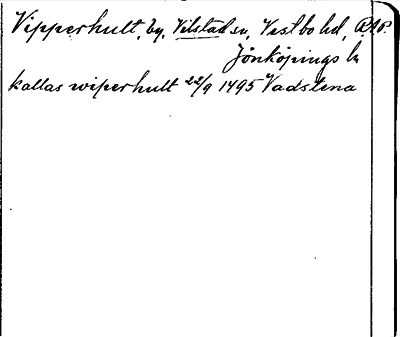 Vipperhult, by, Vilstad sn, Vestbo hd,
Jönköpings ln
kallas wiperhult 22/9 1495 Vadstena